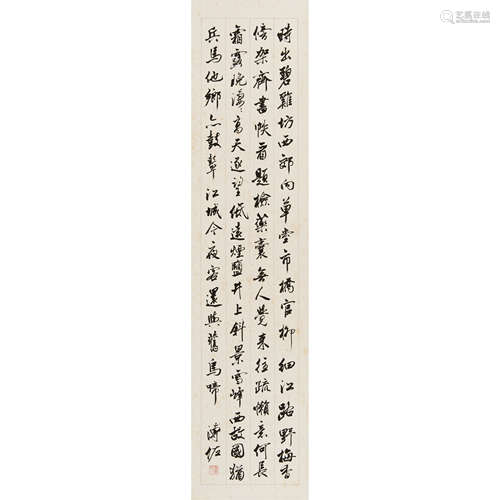 時出碧雞坊西郊向草堂市橋官柳細江路野梅香
傍架齊書帙看題檢藥囊無人覺來往疏懶意何長
霜露晚淒〻高天逐望低遠煙鹽井上斜景雪峰西故國猶
兵馬他鄉亦鼓鼙江城今夜客還與舊烏啼 溥佐
艺狐在线